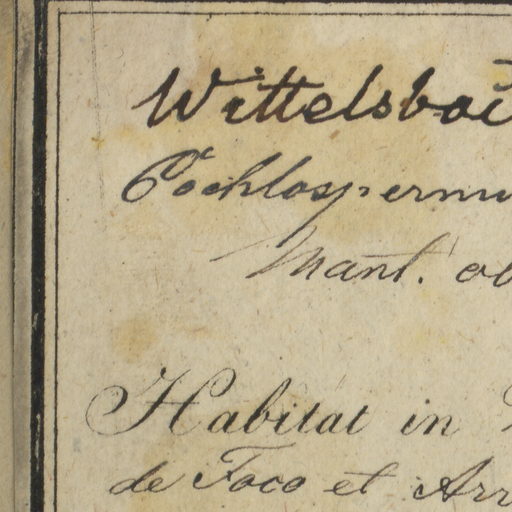 Wittelsbac
Cochlospermu
Mant.
Habitat in
de Foco et Arr